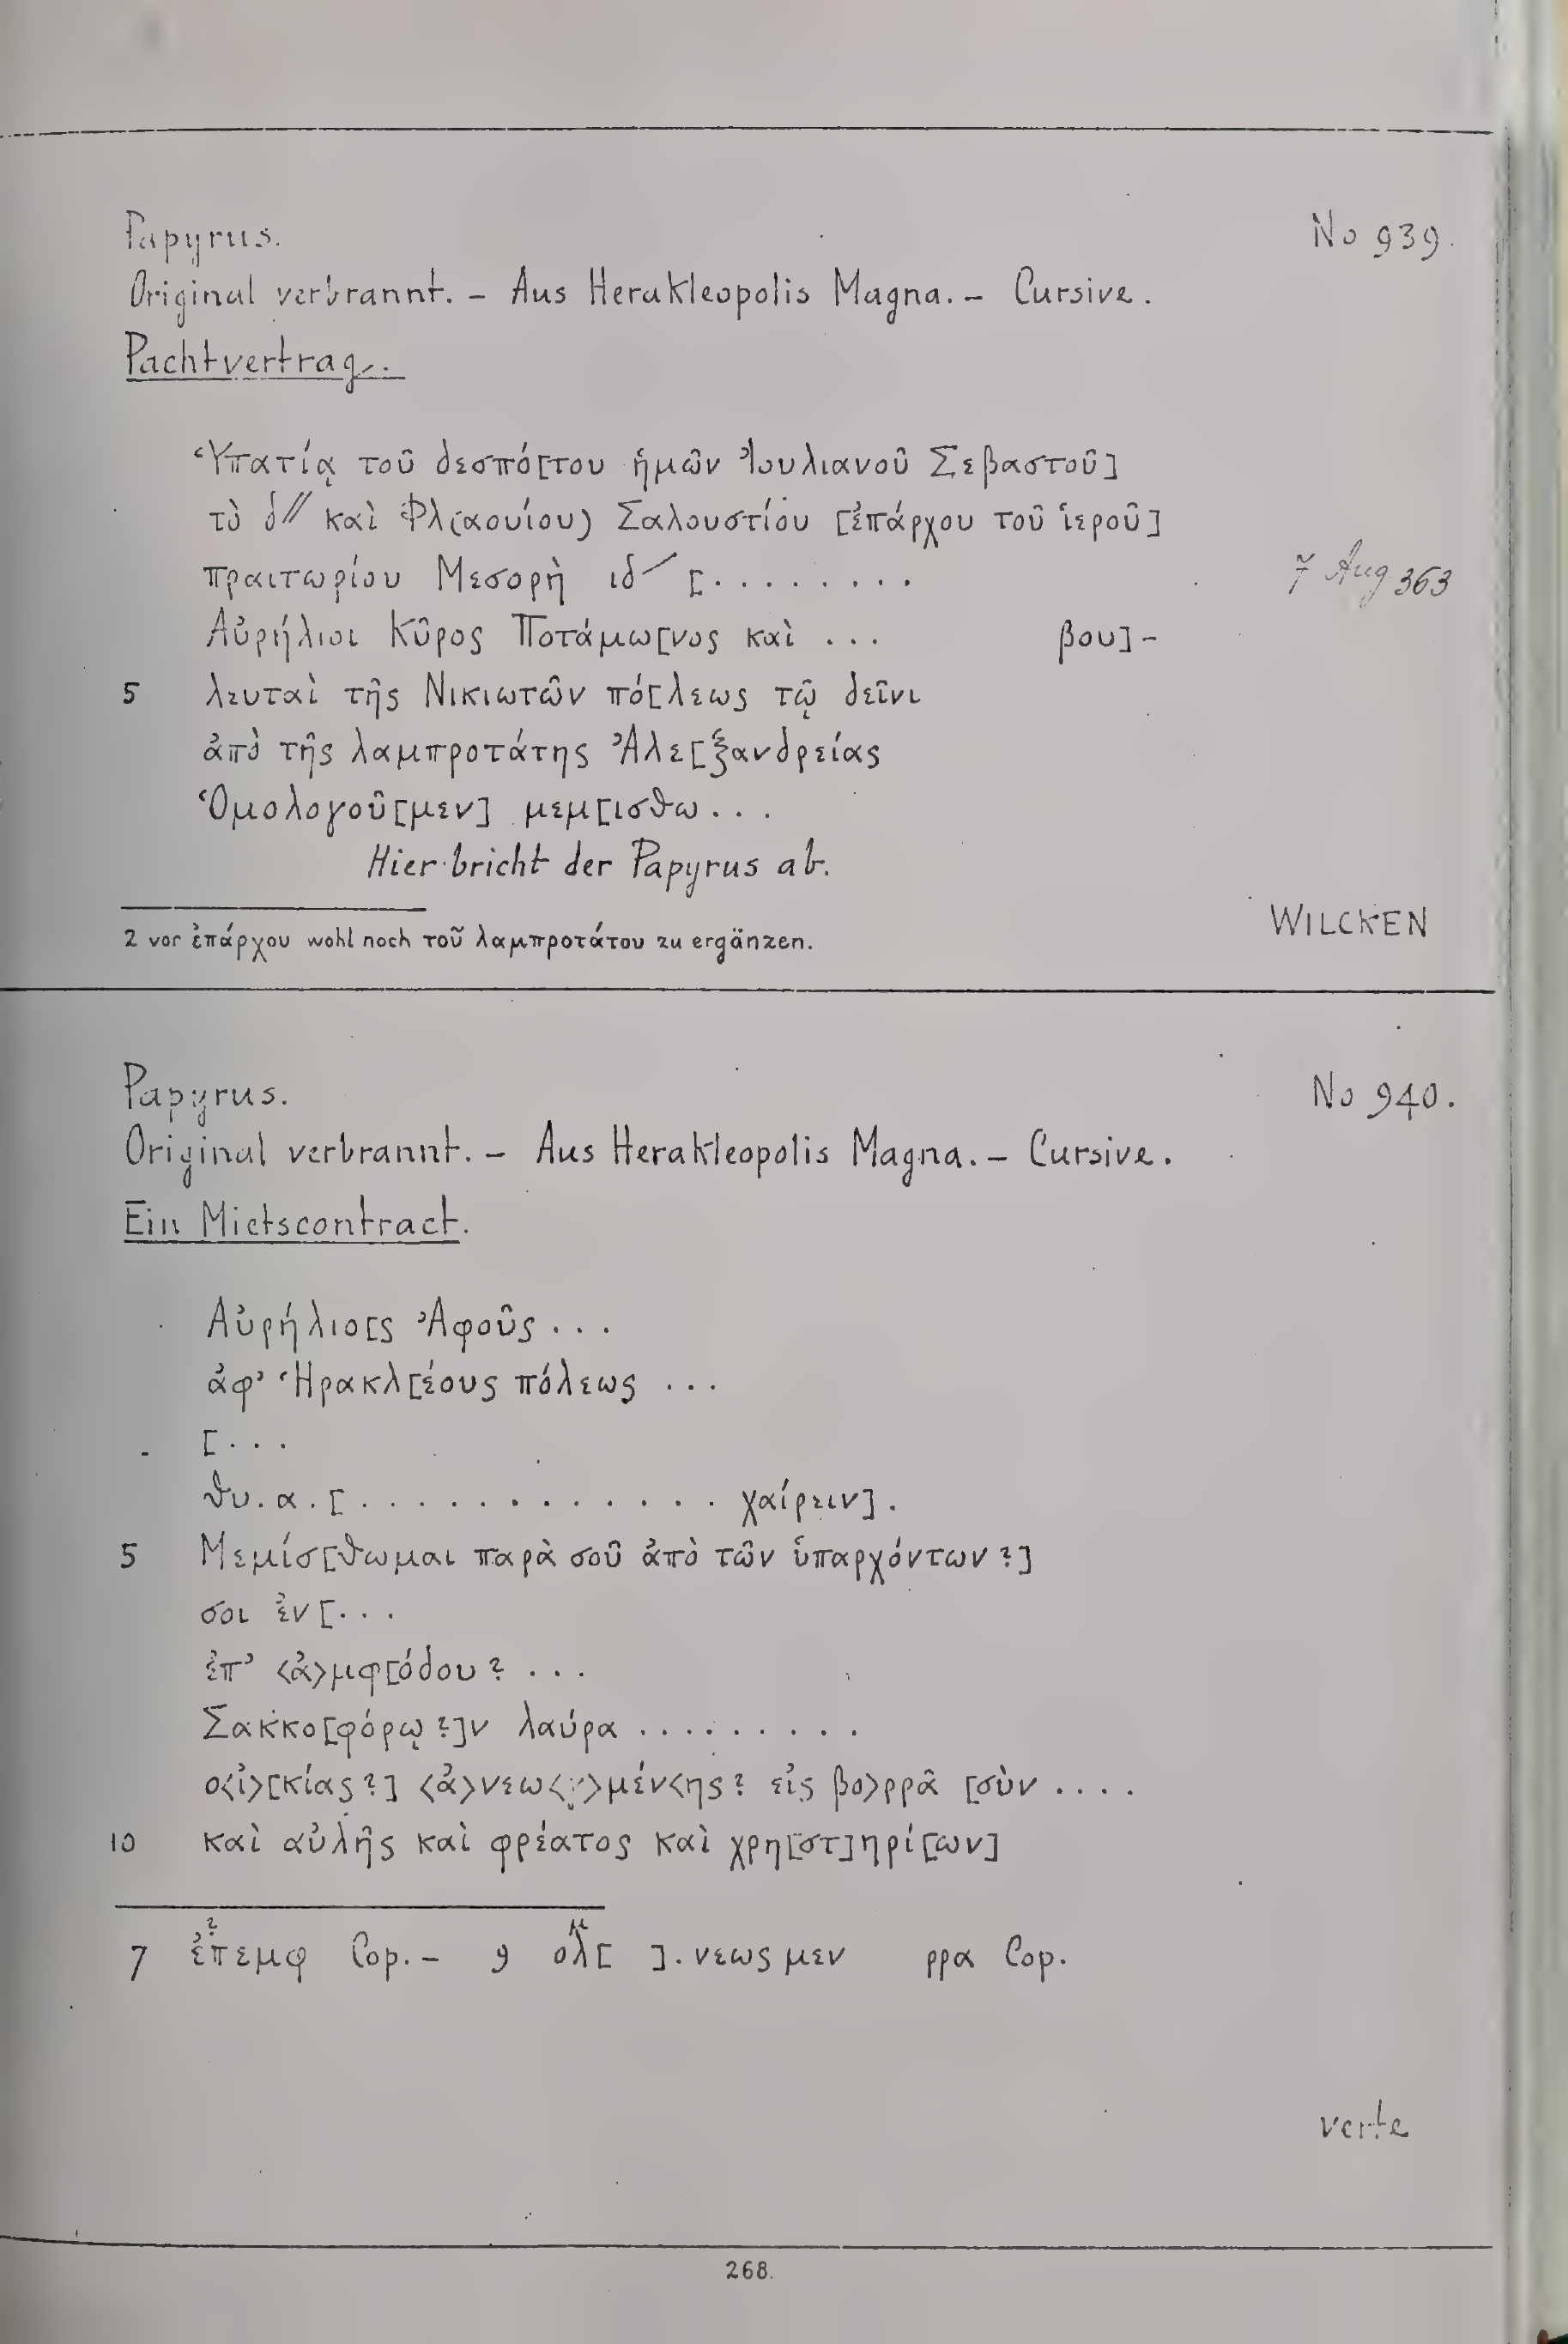 Papyrus. No 939.
Original verbrannt. – Aus Herakleopolis Magna. – Cursive.
Pachtvertrag.
Ὑπατίᾳ τοῦ δεσπό[του ἡμῶν Ἰουλιανοῦ Σεβαστοῦ]
τὸ δ// καὶ Φλ(αουίου) Σαλουστίου [ἐπάρχου τοῦ ἱεροῦ]
πραιτωρίου Μεσορὴ ιδ/ [. . . . . . . . 7 Aug 363
Αὐρήλιοι Κῦρος Ποτάμω[νος καὶ . . . βου]-
5 λευταὶ τῆς Νικιωτῶν πό[λεως τῷ δεῖνι
ἀπὸ τῆς λαμπροτάτης Ἀλε[ξανδρείας
Ὁμολογοῦ[μεν] μεμ[ισθω . . .
Hier bricht der Papyrus ab.
WILCKEN
2 vor ἐπάρχου wohl noch τοῦ λαμπροτάτου zu ergänzen.
Papyrus. No 940.
Original verbrannt. – Aus Herakleopolis Magna. – Cursive.
Ein Mietscontract.
Αὐρήλιο[ς Ἀφοῦς . . .
ἀφ’ Ἡρακλ[έους πόλεως . . .
[. . .
θυ. α . [. . . . . . . . . . . . . χαίρειν].
5 Μεμίσ[θωμαι παρὰ σοῦ ἀπὸ τῶν ὑπαρχόντων ?]
σοι ἐν [. . .
ἐπ’ <ἀ>μφ[όδου ? . . .
Σακκο[φόρῳ ?]ν λαύρα . . . . . . . . .
ο<ἰ>[κίας ?] <ἀ>νεω<γ>μέν<ης ? εἰς βο>ρρᾶ [σὺν . . . .
10 καὶ αὐλῆς καὶ φρέατος καὶ χρη[στ]ηρί[ων]
7 ἐπεμφ Cop. – 9 ολ[ ]. νεως μεν ρρα Cop.
verte
268.